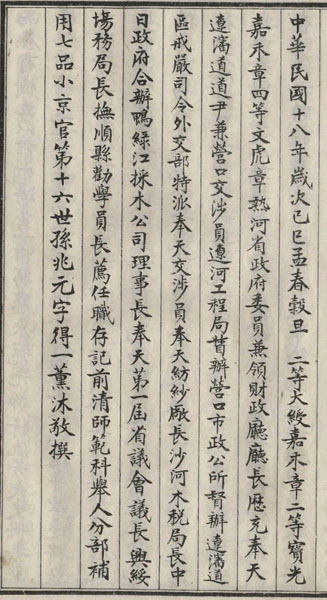 中華民國十八年歲次己巳孟春穀旦 二等大綬嘉禾章二等寶光
嘉禾章四等文虎章熱河省政府委員兼領財政廳廳長歷充奉天
遼瀋道道尹兼營口交涉員遼河工程局督辦營口市政公所督辦遼瀋道
區戒嚴司令外交部特派奉天交涉員奉天紡紗廠長沙河木稅局長中
日政府合辦鴨綠江採木公司理事長奉天第一屆省議會議長興綏
塲務局長撫順縣勸學員長薦任職存記前清師範科舉人分部補
用七品小京官第十六世孫兆元字得一薰沐敬撰